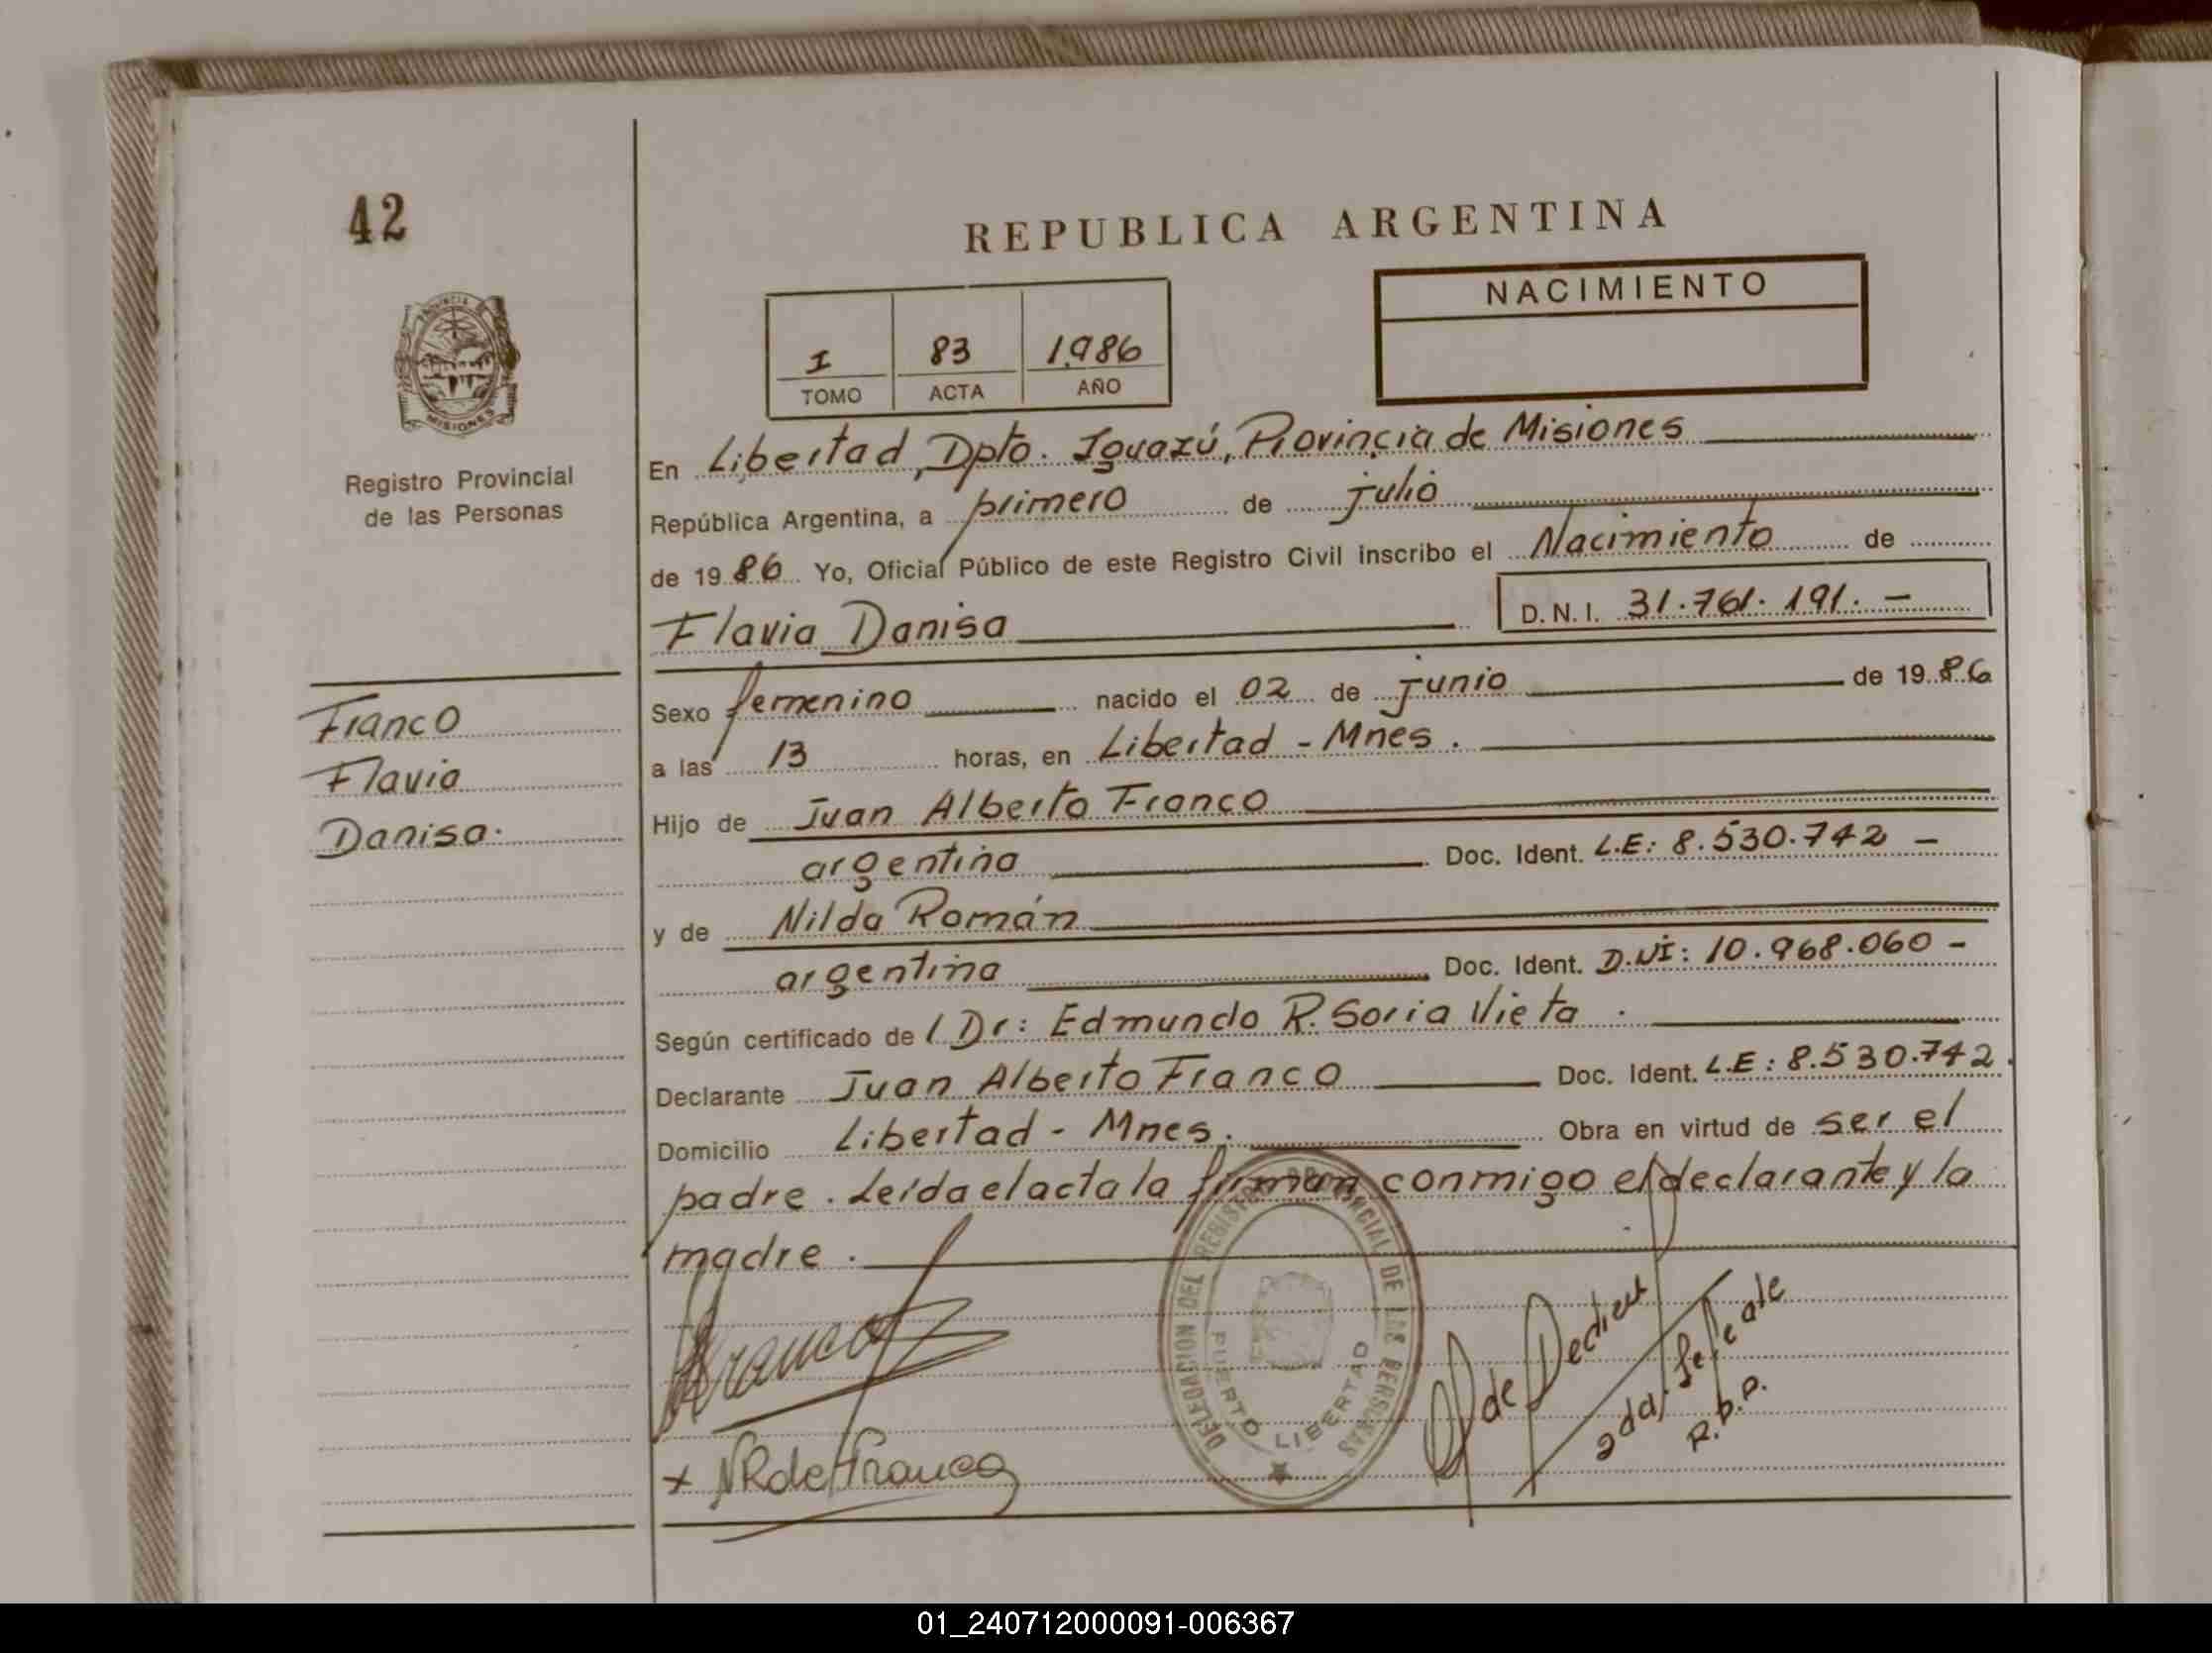 42
REPUBLICA ARGENTINA
NACIMIENTO
I 83 1.986
TOMO ACTA AÑO
PROVINCIA DE
MISIONES
Registro Provincial
de las Personas
En Libertad, Dpto. Iguazú, Provincia de Misiones
República Argentina, a primero de julio
de 19 86 Yo, Oficial Público de este Registro Civil inscribo el Nacimiento de
Flavia Danisa D.N.I. 31.761.191.-
Franco
Flavia
Danisa.
Sexo femenino nacido el 02 de junio de 19 86
a las 13 horas, en Libertad - Mnes.
Hijo de Juan Alberto Franco
argentino Doc. Ident. L.E: 8.530.742 -
y de Nilda Román
argentina Doc. Ident. D.NI: 10.968.060 -
Según certificado de l Dr: Edmundo R. Soria Vieta.
Declarante Juan Alberto Franco Doc. Ident. L.E: 8.530.742.
Domicilio Libertad - Mnes. Obra en virtud de ser el
padre. Leída el acta la firman conmigo el declarante y la
madre.
DELEGACION DEL REGISTRO PROVINCIAL DE LAS PERSONAS
PUERTO LIBERTAD
Franco
x NR de Franco
de
R.P.P.
01_240712000091-006367